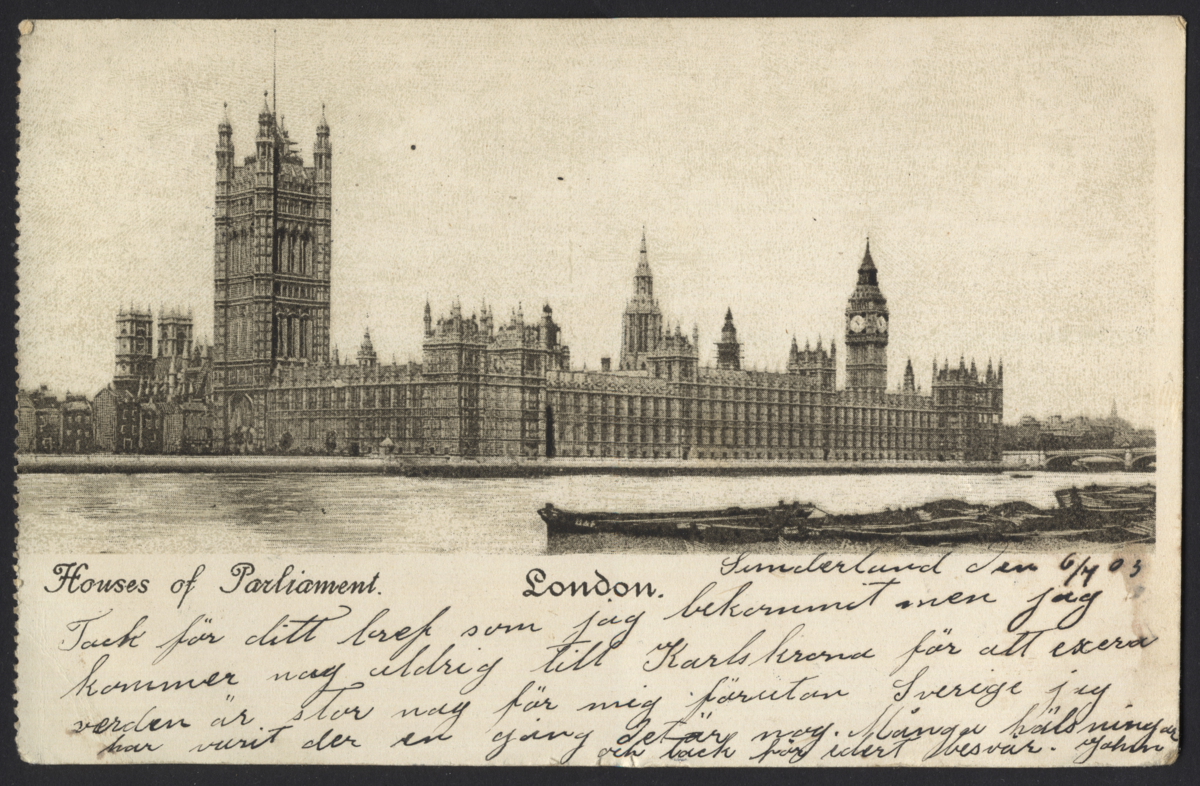 Houses of Parliament. London.
Sunderland den 6/7 03
Tack för ditt bref som jag bekommit men jag
kommer nog aldrig till Karlskrona för att exera
verlden är stor nog för mig förutan Sverige jag
har varit der en gång det är nog. Många hälsningar
och tack för edert besvär. John